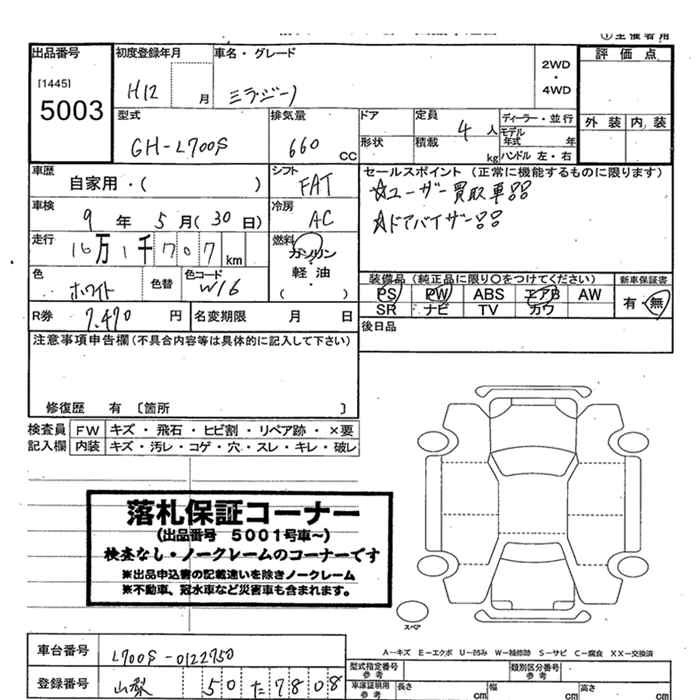 ①主催者用
出品番号 初度登録年月 車名・グレード 評価点
[1445] H12 月 ミラジーノ 2WD・4WD
5003
型式 排気量 ドア 定員 ディーラー・並行 外装 内装
GH-L700S 660 CC 4人 モデル年式 年
形状 積載 kg ハンドル 左・右
車歴 シフト セールスポイント (正常に機能するものに限ります)
自家用・( ) FAT ☆ユーザー買取車!!
車検 冷房 ☆ドアバイザー!!
9年5月(30日) AC
走行 燃料
16万1千707km ガソリン・軽油・( )
色 色替 色コード 装備品 (純正品に限り〇をつけてください) 新車保証書
ホワイト W16 PS PW ABS エアB AW 有・無
SR ナビ TV カワ
R券 7,470円 名変期限 月 日 後日品
注意事項申告欄(不具合内容等は具体的に記入して下さい)
修復歴 有 〔箇所 〕
検査員 FW キズ・飛石・ヒビ割・リペア跡・×要
記入欄 内装 キズ・汚レ・コゲ・穴・スレ・キレ・破レ
落札保証コーナー
(出品番号 5001号車~)
検査なし・ノークレームのコーナーです
※出品申込書の記載違いを除きノークレーム
※不動車、冠水車など災害車も含まれます。
スペア
A-キズ E-エクボ U-凹み W-補修跡 S-サビ C-腐食 XX-交換済
車台番号 L700S-0122750 型式指定番号 参考 類別区分番号 参考
登録番号 山梨 50 た 7808 車庫証明用 参考 長さ cm 幅 cm 高さ cm